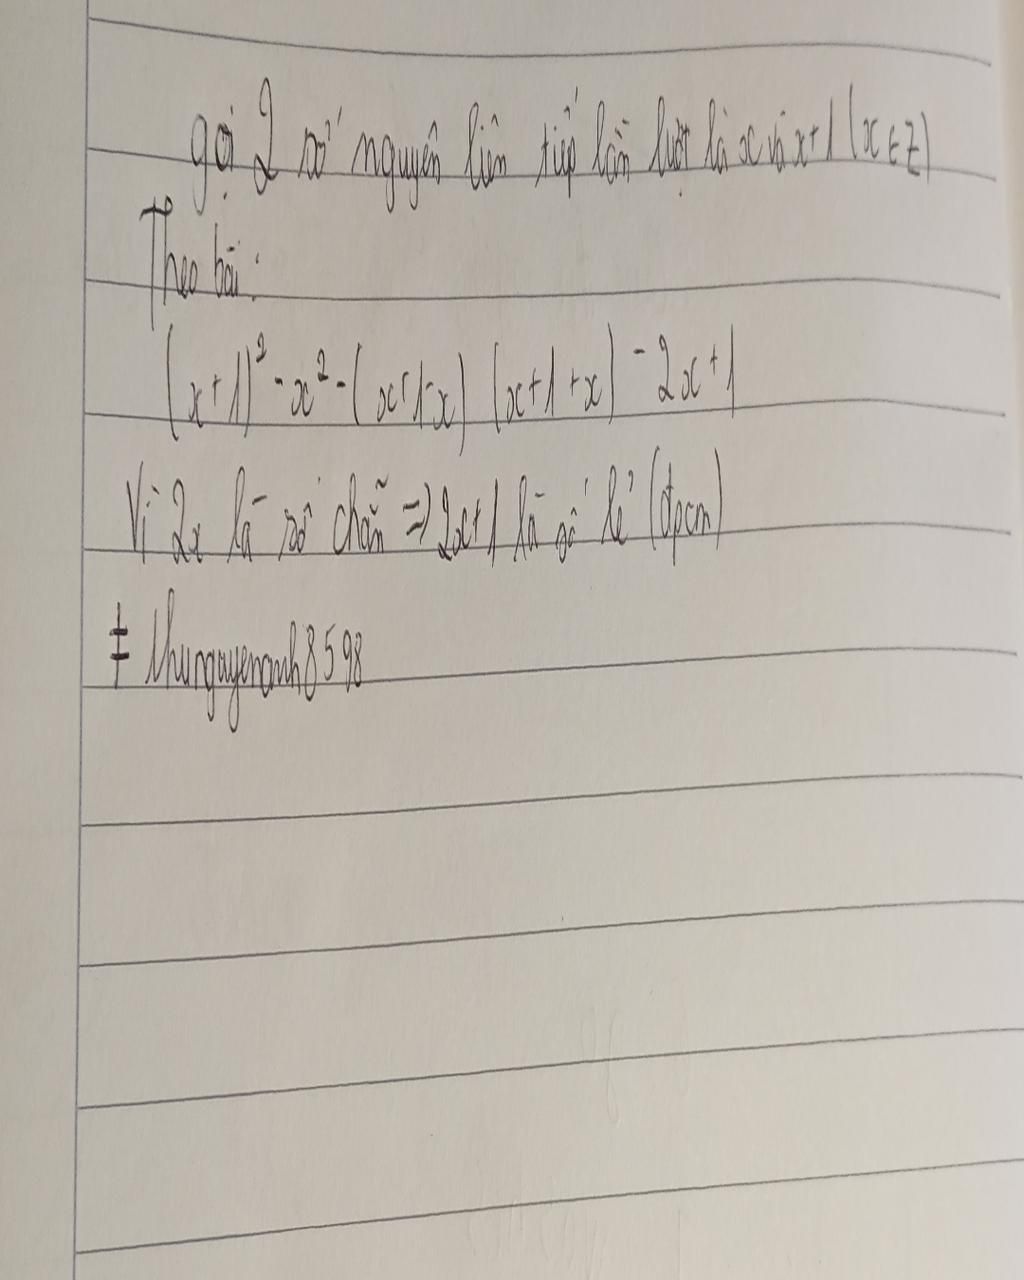 gọi 2 số nguyên liên tiếp lần lượt là x và x+1 (x ∈ Z)
Theo bài:
(x+1)² - x² = (x+1-x) (x+1+x) = 2x+1
Vì 2x là số chẵn => 2x+1 là số lẻ (đpcm)
‡ khunguyenanh8598